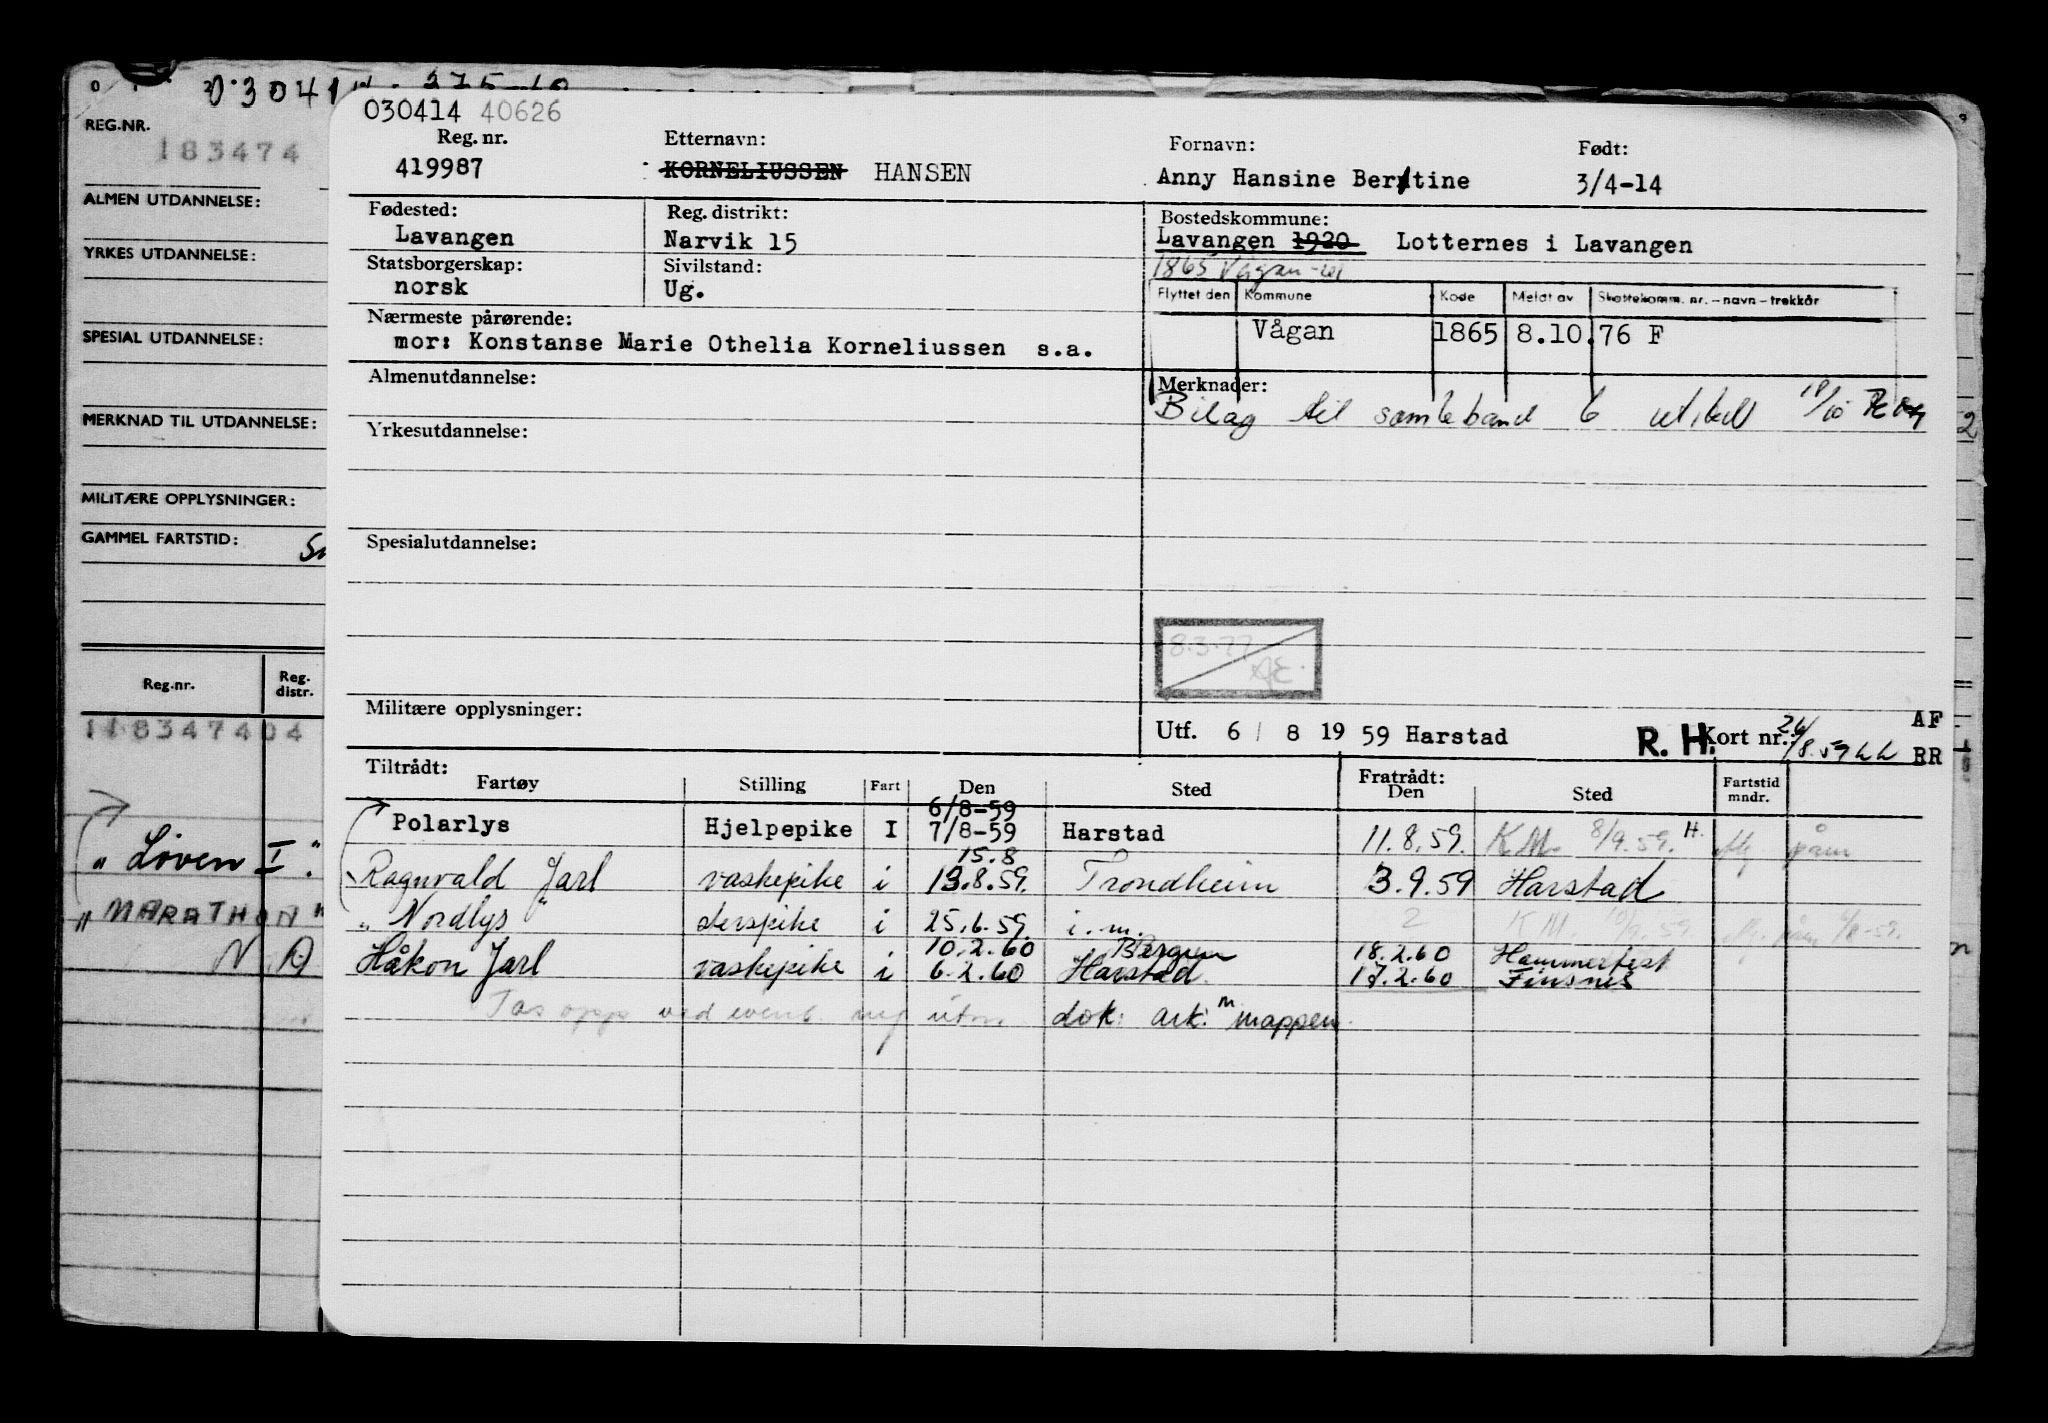 030414 40626
Reg. nr. Etternavn: Fornavn: Født:
419987 KORNELIUSSEN HANSEN Anny Hansine Bertine 3/4-14
Fødested: Reg. distrikt: Bostedskommune:
Lavangen Narvik 15 Lavangen 1920 Lotternes i Lavangen
1865 Vågan
Statsborgerskap: Sivilstand:
norsk Ug.
Flyttet den Kommune Kode Meldt av Skattekomm. nr. – navn – trekkår
Vågan 1865 8.10.76 F
Nærmeste pårørende:
mor: Konstanse Marie Othelia Korneliussen s.a.
Almenutdannelse: Merknader:
Bilag til samleband 6
Yrkesutdannelse:
Spesialutdannelse:
8.3.77
Militære opplysninger:
Utf. 6/8 1959 Harstad R. H. Kort nr.: AF
26/8.59 RR
Tiltrådt: Fratrådt:
Fartøy Stilling Fart Den Sted Den Sted Fartstid mndr.
6/8-59
Polarlys Hjelpepike I 7/8-59 Harstad 11.8.59. K M. 8/9.59. H.
15.8
Ragnvald Jarl vaskepike i 13.8.59. Trondheim 3.9.59 Harstad
"Nordlys" derspike i 25.6.59. i.m. 2 K M.
10.2.60 Bergen 18.2.60 Hammerfest
Håkon Jarl vaskepike i 6.2.60 Harstad 17.2.60 Finsnes
Tas opp ved event. dok: ark: "mappen.
REG.NR.
183474
ALMEN UTDANNELSE:
YRKES UTDANNELSE:
SPESIAL UTDANNELSE:
MERKNAD TIL UTDANNELSE:
MILITÆRE OPPLYSNINGER:
GAMMEL FARTSTID:
Reg.nr. Reg. distr.
118347404
"Löven I".
"MARATHON"
N.A